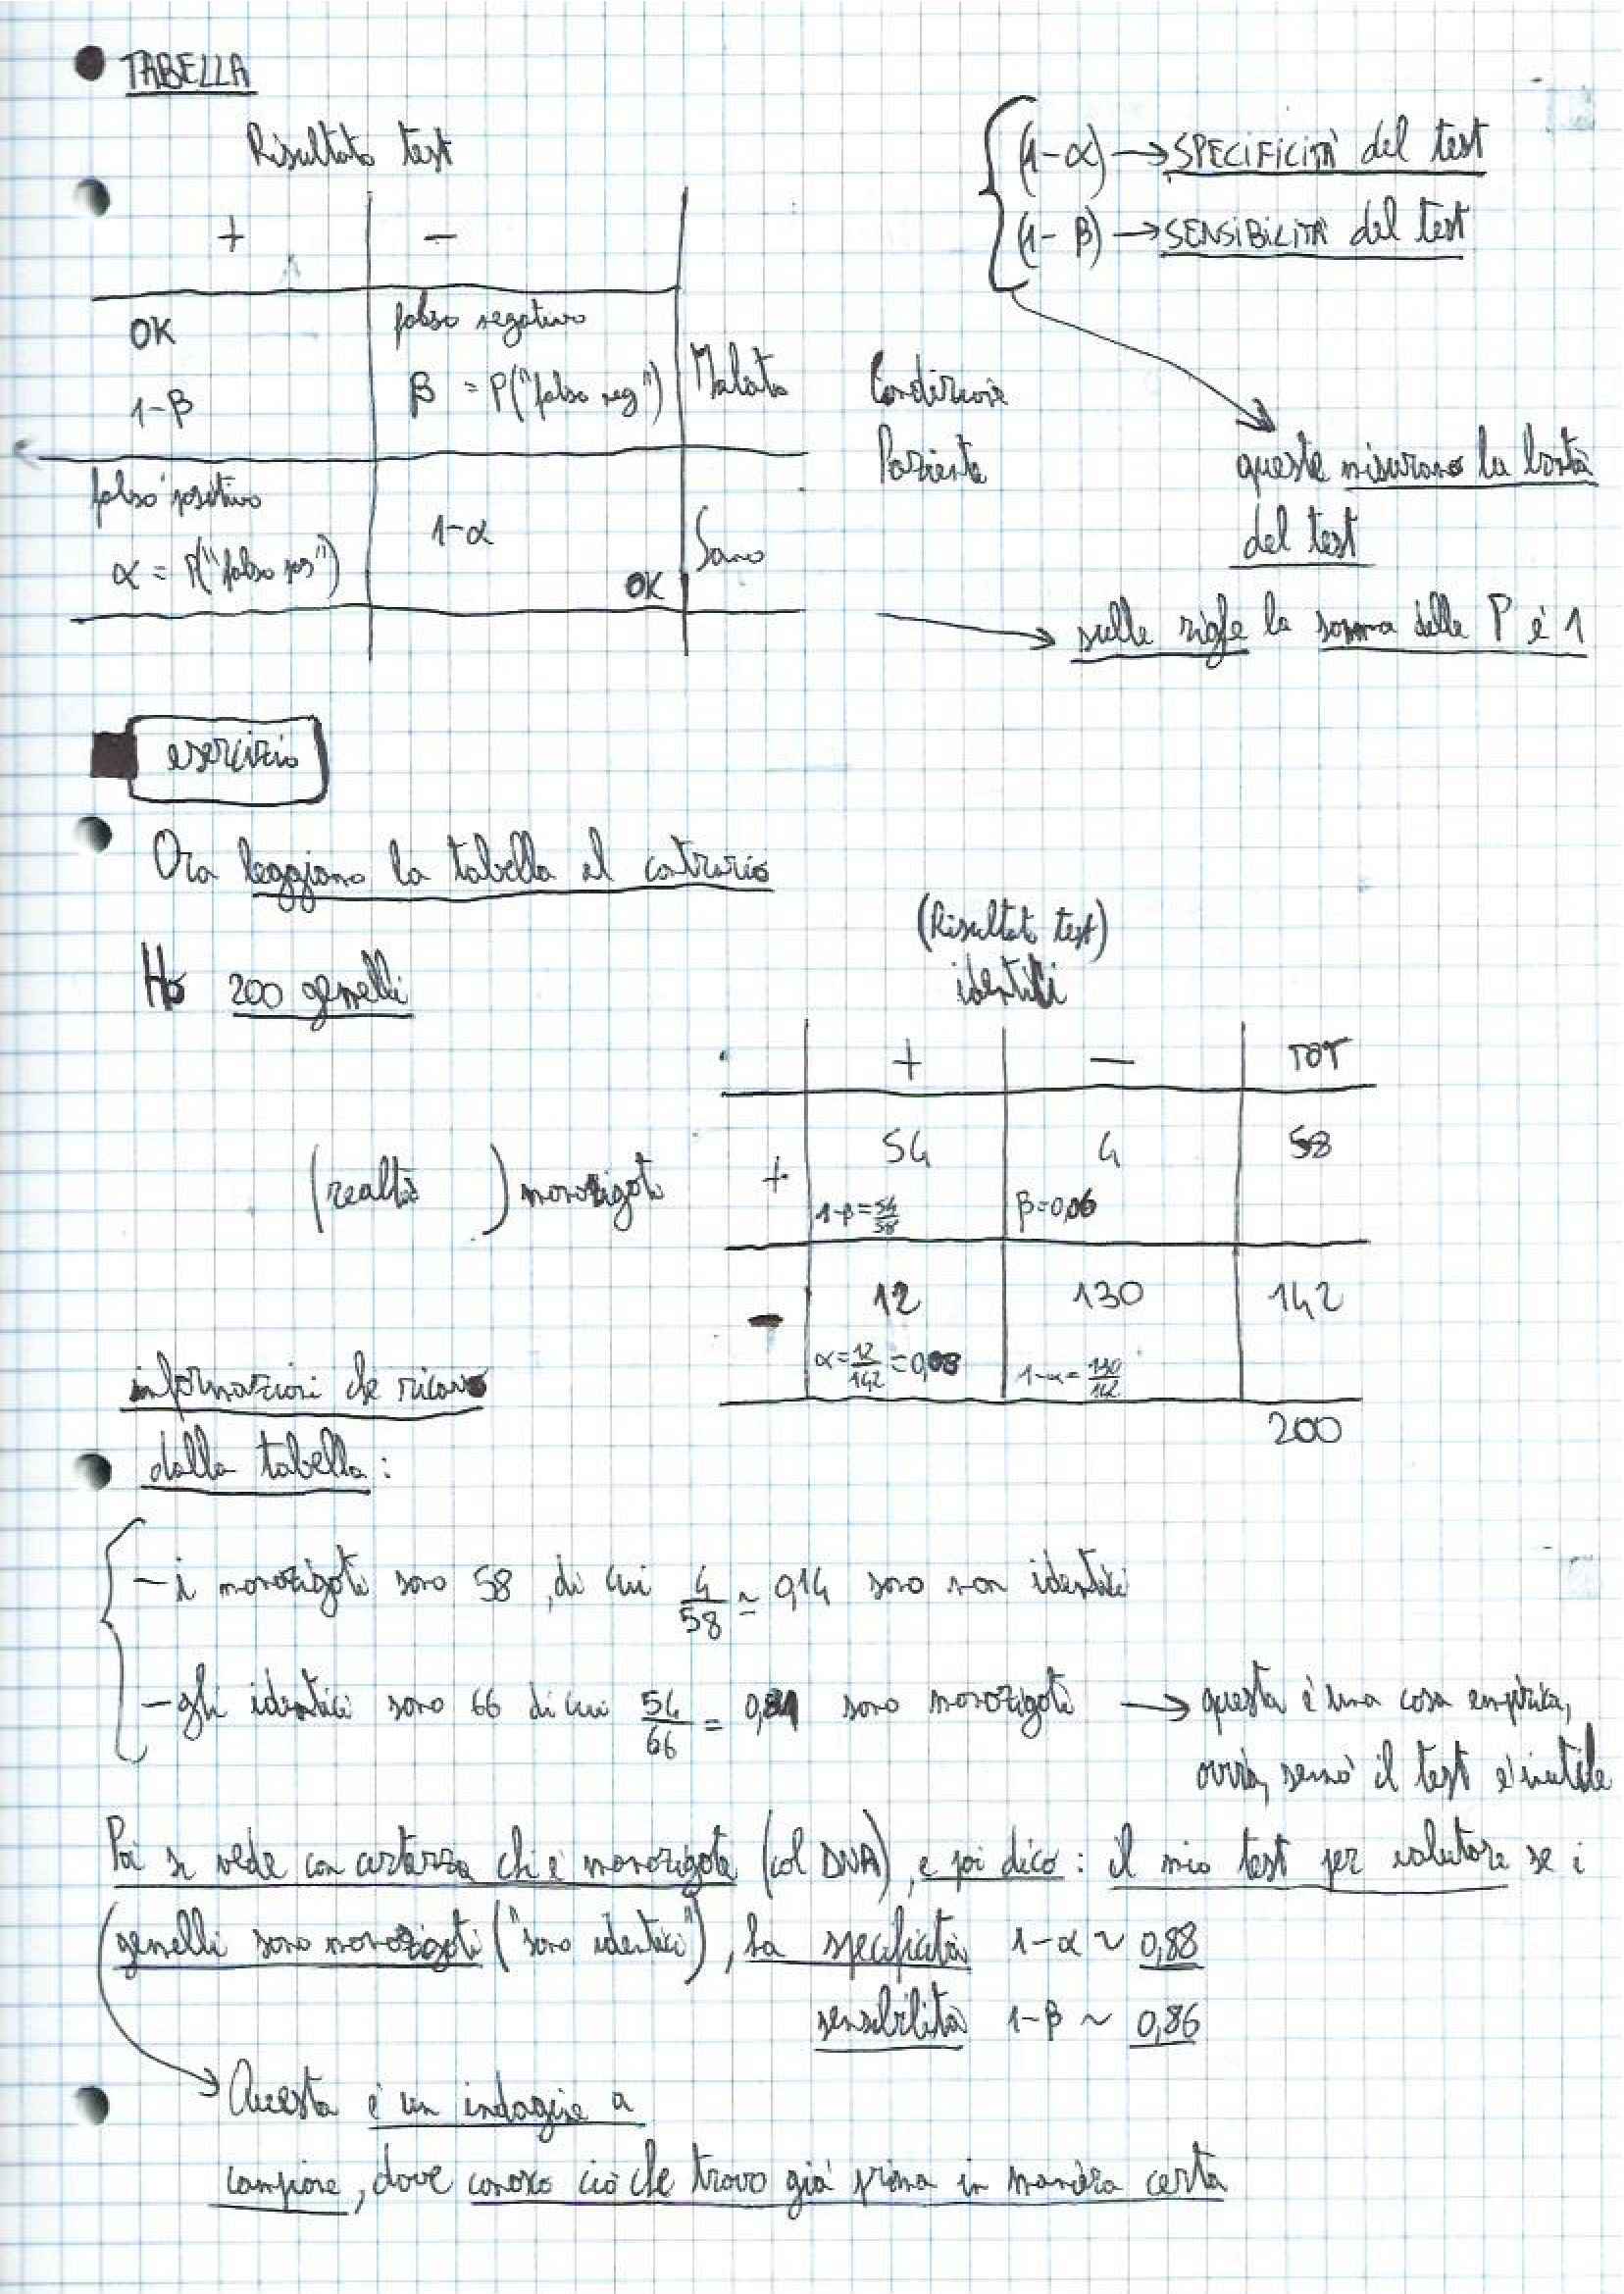 TABELLA
Risultato test
+ −
OK falso negativo
1-β β = P("falso neg") Malato
falso positivo
α = P("falso pos") 1-α OK Sano
Condizione
Paziente
(1-α) → SPECIFICITÀ del test
(1-β) → SENSIBILITÀ del test
queste misurano la bontà
del test
→ sulle righe la somma delle P è 1
esercizio
Ora leggiamo la tabella al contrario
Ho 200 gemelli
(Risultato test)
identici
+ − TOT
(realtà ) monozigoti + 54 4 58
1-β=54/58 β=0,06
− 12 130 142
α=12/142=0,08 1-α=130/142
200
informazioni che ricavo
dalla tabella:
− i monozigoti sono 58, di cui 4/58 ≃ 0,14 sono non identici
− gli identici sono 66 di cui 54/66 = 0,81 sono monozigoti → questa è una cosa empirica,
ovvia, sennò il test è inutile
Poi si vede con certezza chi è monozigote (col DNA), e poi dico: il mio test per valutare se i
gemelli sono monozigoti ("sono identici"), ha specificità 1-α ~ 0,88
sensibilità 1-β ~ 0,86
Questa è un indagine a
campione, dove conosco ciò che trovo già prima in maniera certa